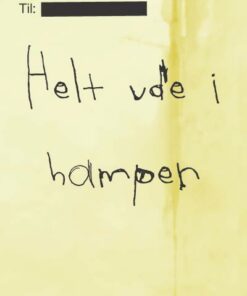 Til:
Helt ude i
hampen